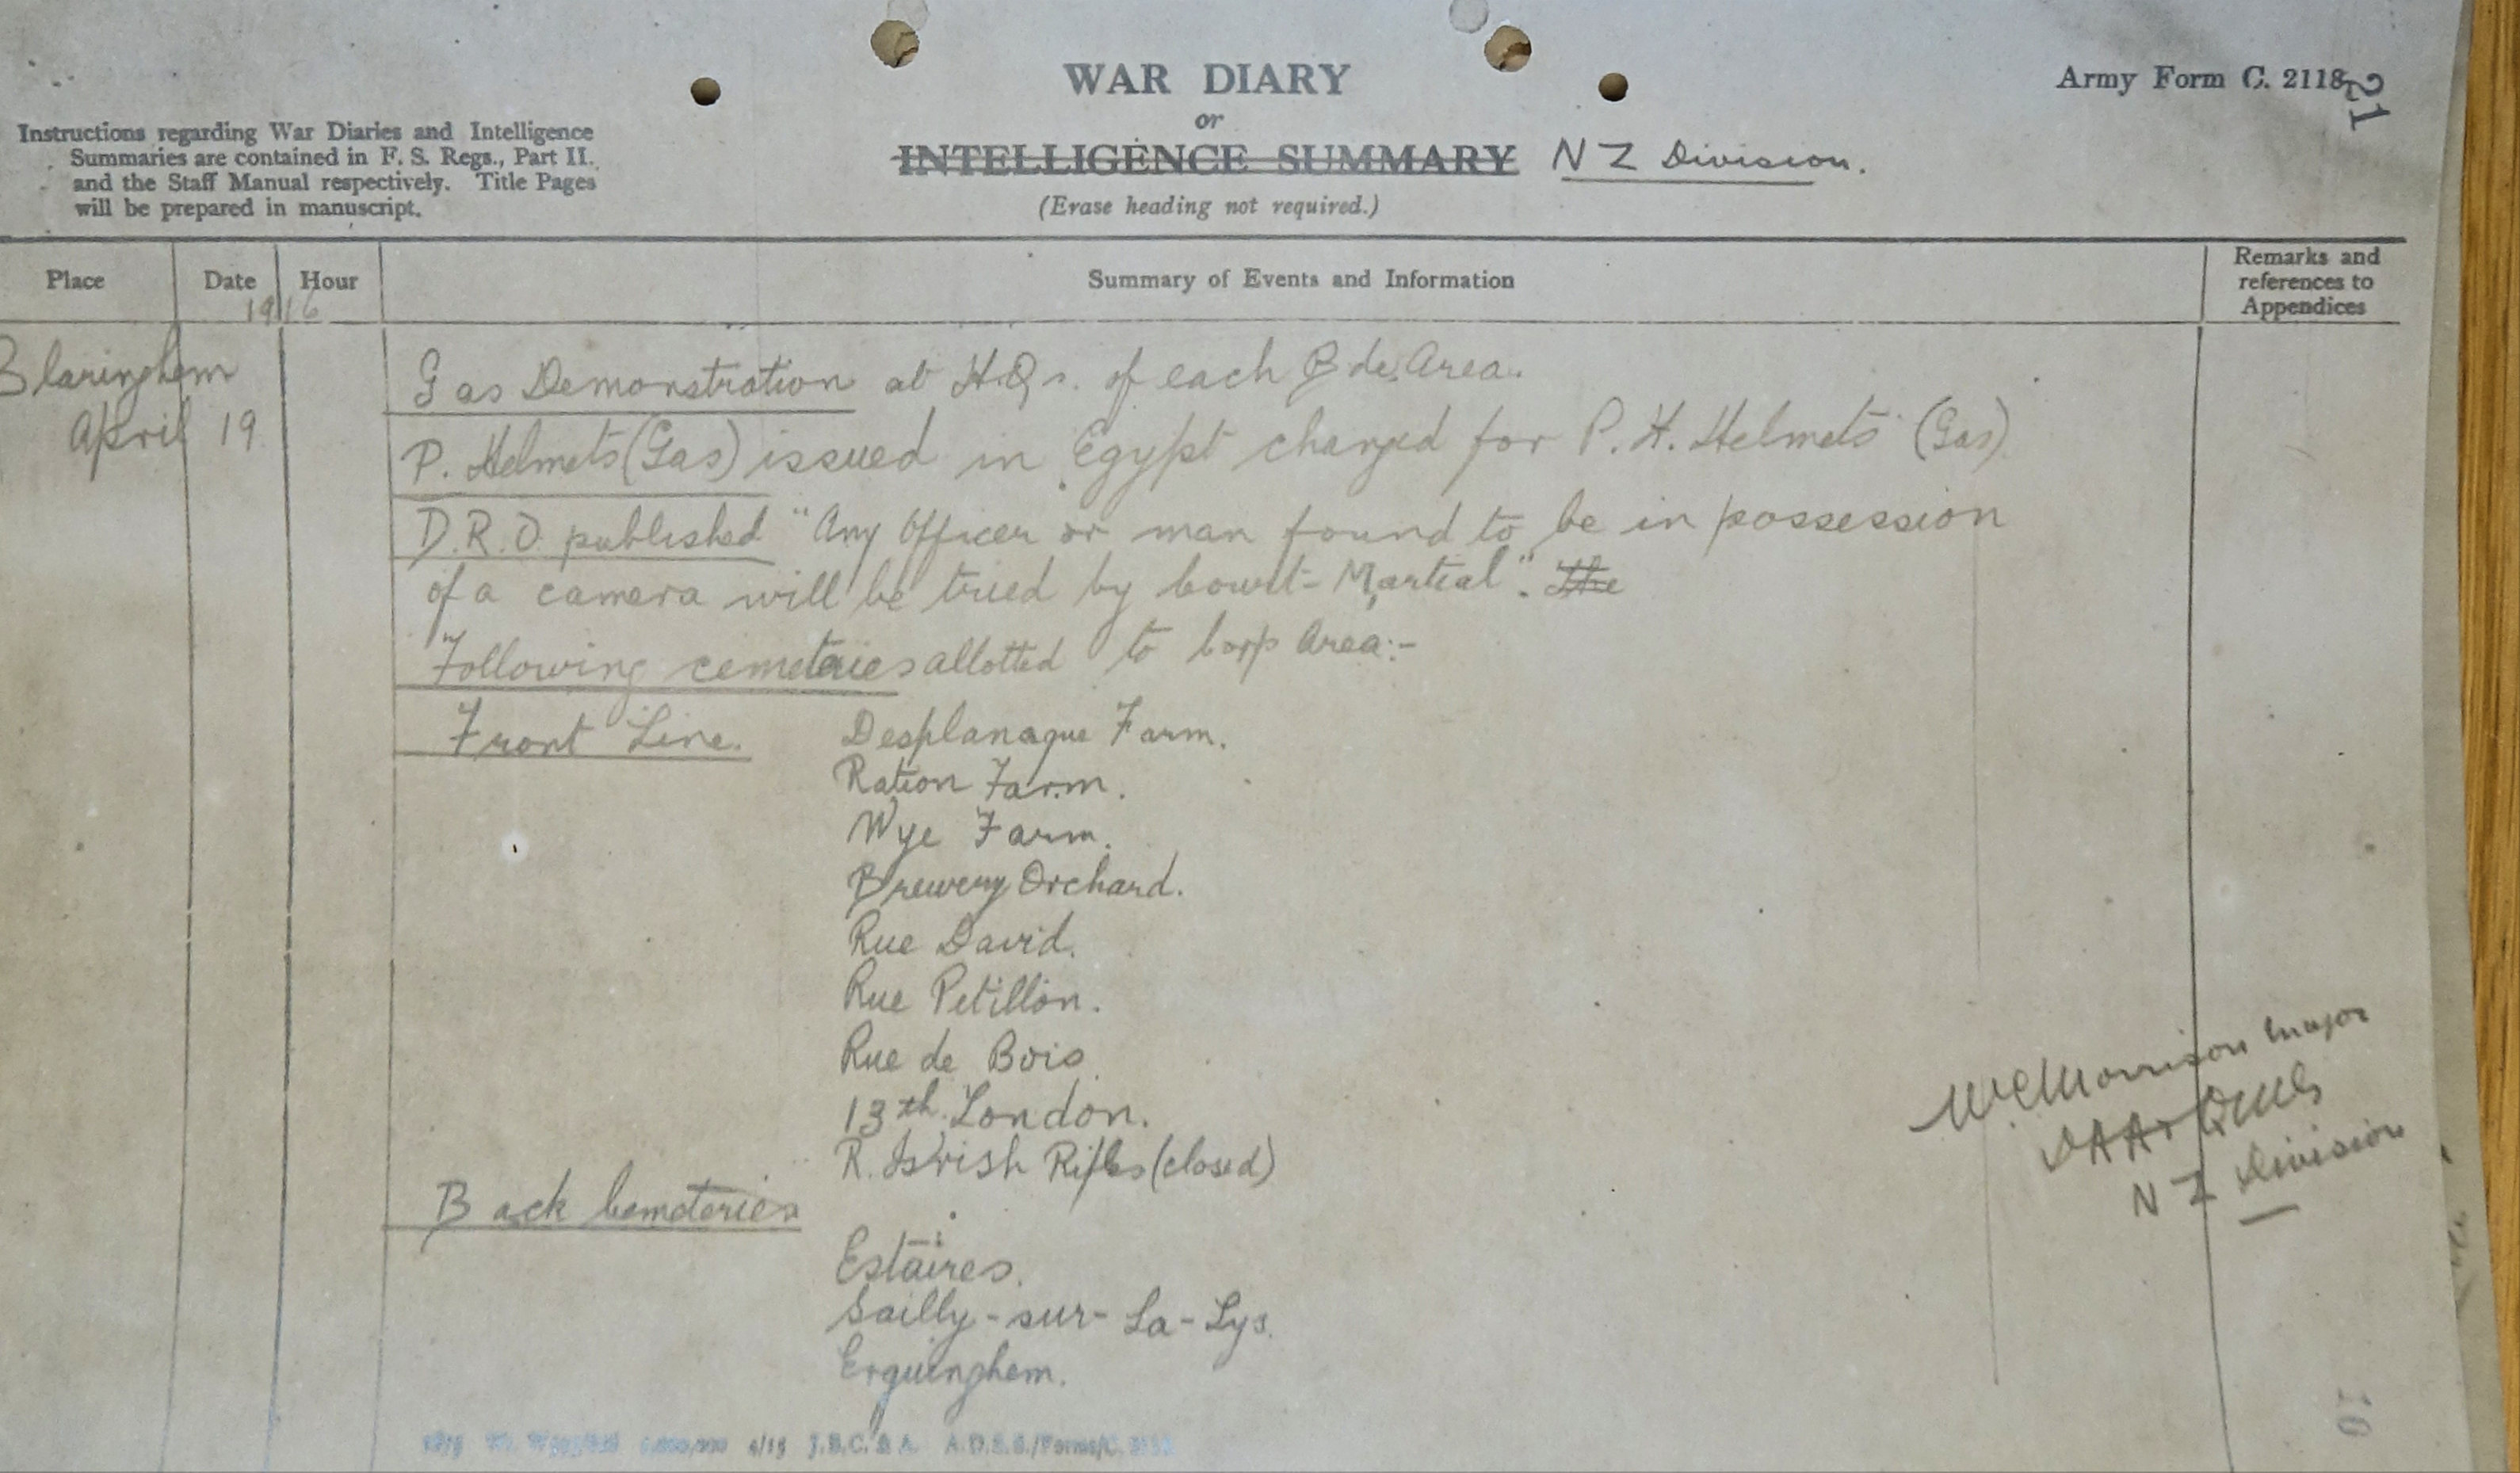 WAR DIARY
or
INTELLIGENCE SUMMARY NZ Division.
(Erase heading not required.)
Army Form C. 2118
21
Instructions regarding War Diaries and Intelligence
Summaries are contained in F. S. Regs., Part II.
and the Staff Manual respectively. Title Pages
will be prepared in manuscript.
Place Date Hour Summary of Events and Information Remarks and
references to
Appendices
1916
Blaringhem
April 19
Gas Demonstration at HQrs. of each Bde. Area.
P. Helmets (Gas) issued in Egypt changed for P. H. Helmets (Gas)
D.R.O. published "Any Officer or man found to be in possession
of a camera will be tried by Court-Martial". The
Following cemeteries allotted to Corp Area:-
Front Line. Desplanaque Farm.
Ration Farm.
Wye Farm.
Brewery Orchard.
Rue David.
Rue Petillon.
Rue de Bois
13th London.
R. Irish Rifles (closed)
Back Cemeteries
Estaires.
Sailly-sur-La-Lys.
Erquinghem.
Morrison Major
DAA & QMG
NZ Division
4/15 J.B.C. & A. A.D.S.S./Forms/C. 2118
10